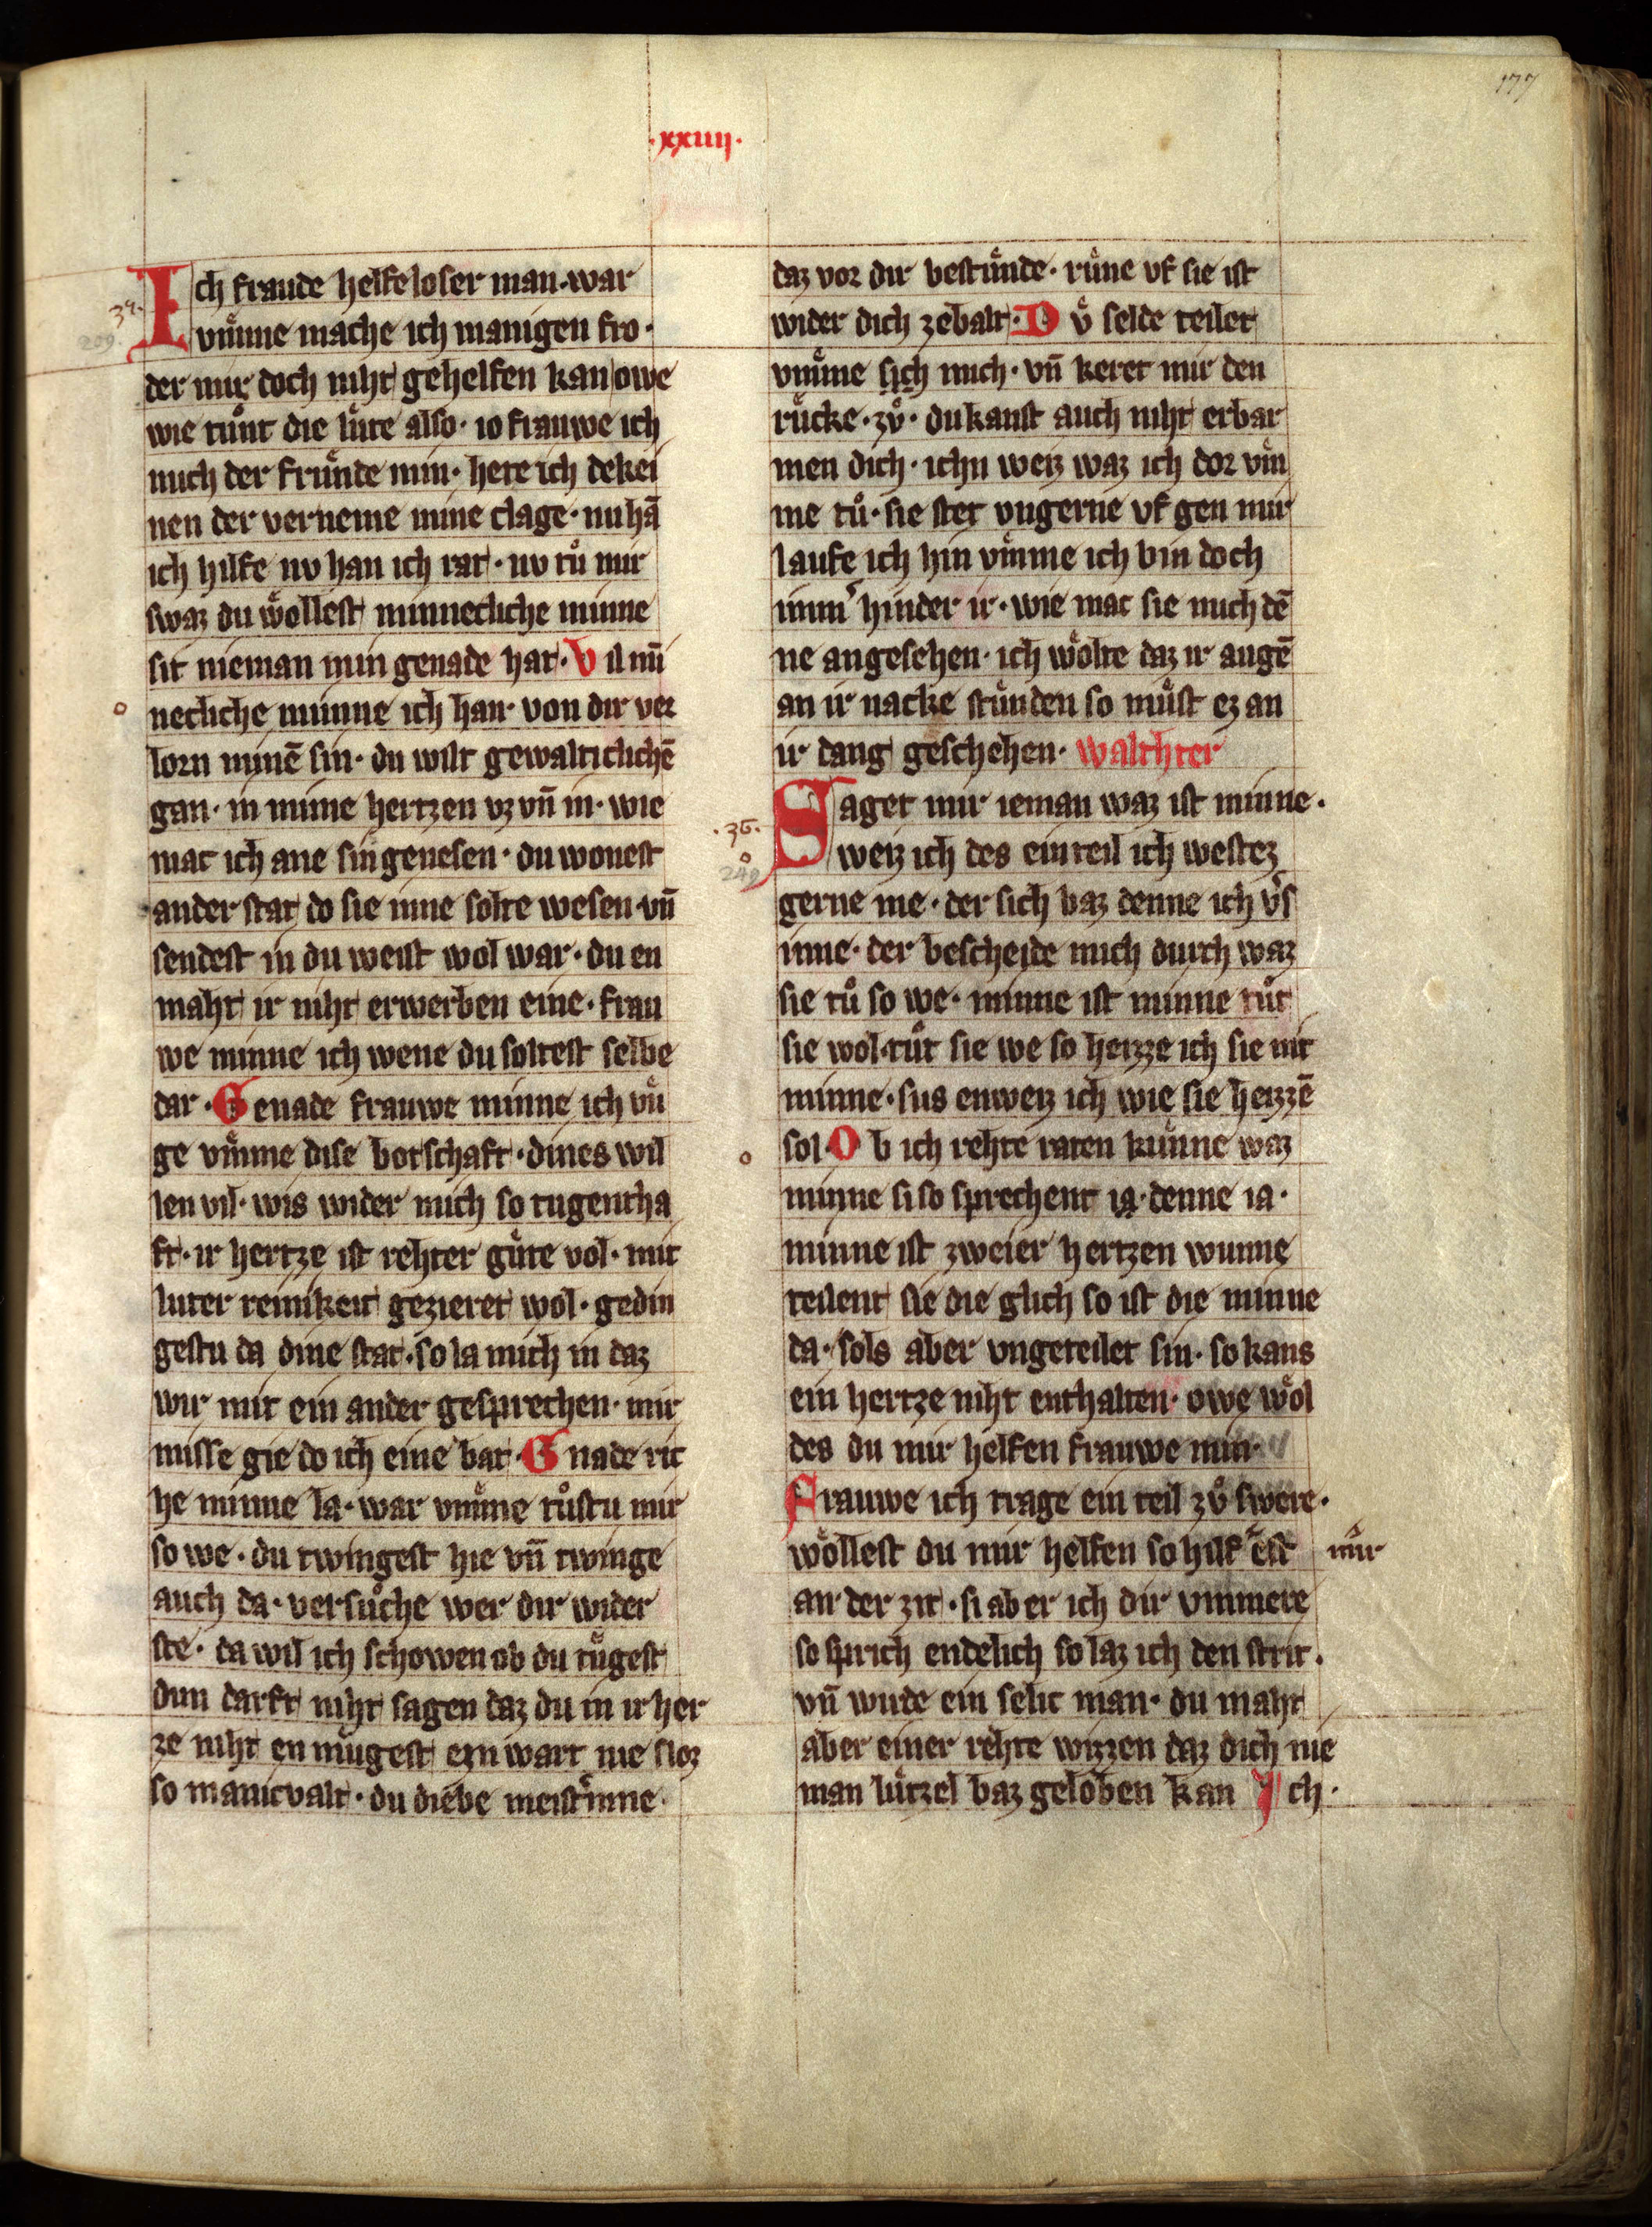 177
·xxiiij·
Ich fraude helfeloser man·war
vmͤme mache ich manigen fro·
der mir doch niht gehelfen kan owe
wie tuͦnt die luͤte also· io frauwe ich
mich der fruͤnde min· hete ich dekei
nen der verneme mine clage· nu hā
ich hilfe nv han ich rat· nv tuͦ mir
swaz du woͤllest minnecliche minne
sit nieman min genade hat· Vil mī
necliche minne ich han· von dir ver
lorn minē sin· du wilt gewalticlichē
gan· in mime hertzen vz vn̄ in· wie
mac ich ane sin genesen· du wonest
ander stat do sie inne solte wesen·vn̄
sendest in du weist wol war· du en
maht ir niht erwerben eine· frau
we minne ich wene du soltest selbe
dar· Genade frauwe minne ich vuͤ
ge vmͤme dise botschaft· dines wil
len vil· wis wider mich so tugentha
ft· ir hertze ist rehter guͤte vol· mit
luter reinikeit gezieret wol· gedin
gestu da dine stat· so la mich in daz
wir mit ein ander gesprechen· mir
misse gie do ich eine bat· Gnade ric
he minne la· war vmͤme tuͦstu mir
so we· du twingest hie vn̄ twinge
auch da· versuͦche wer dir wider
ste· da wil ich schowen ob du tuͤgest
dun darft niht sagen daz du in ir her
ze niht en muͤgest ezn wart nie sloz
so manicvalt· du diebe meist'inne·
daz vor dir bestuͤnde· ruͤne vf sie ist
wider dich zebalt· Duͦ selde teilet
vmͤme sich mich· vn̄ keret mir den
ruͤcke· zuͦ· du kanst auch niht erbar
men dich· ichn weiz waz ich dor vmͤ
me tuͦ· sie stet vngerne vf gen mir
laufe ich hin vmͤme ich bin doch
imm' hinder ir· wie mac sie mich dē
ne angesehen· ich woͤlte daz ir augē
an ir nacke stuͤnden so muͤst ez an
ir dang geschehen· walthter
Saget mir ieman waz ist minne·
weiz ich des ein teil ich westez
gerne me· der sich baz denne ich v's
inne· der bescheide mich durch waz
sie tuͦ so we· minne ist minne tuͦt
sie wol·tuͦt sie we so heizze ich sie nit
minne· sus enweiz ich wie sie heizzē
sol· Ob ich rehte raten kuͤnne waz
minne si so sprechent ia· denne ia·
minne ist zweier hertzen wunne
teilent sie die glich so ist die minne
da· sols aber vngeteilet sin· so kans
ein hertze niht enthalten· owe woͤl
des du mir helfen frauwe min·
Frauwe ich trage ein teil zuͦ swere·
woͤllest du mir helfen so hilf est mir
an der zit· si aber ich dir vnmere
so sprich endelich so laz ich den strit·
vn̄ wirde ein selic man· du maht
aber einer rehte wizzen daz dich nie
man luͤtzel baz geloben kan Ich·